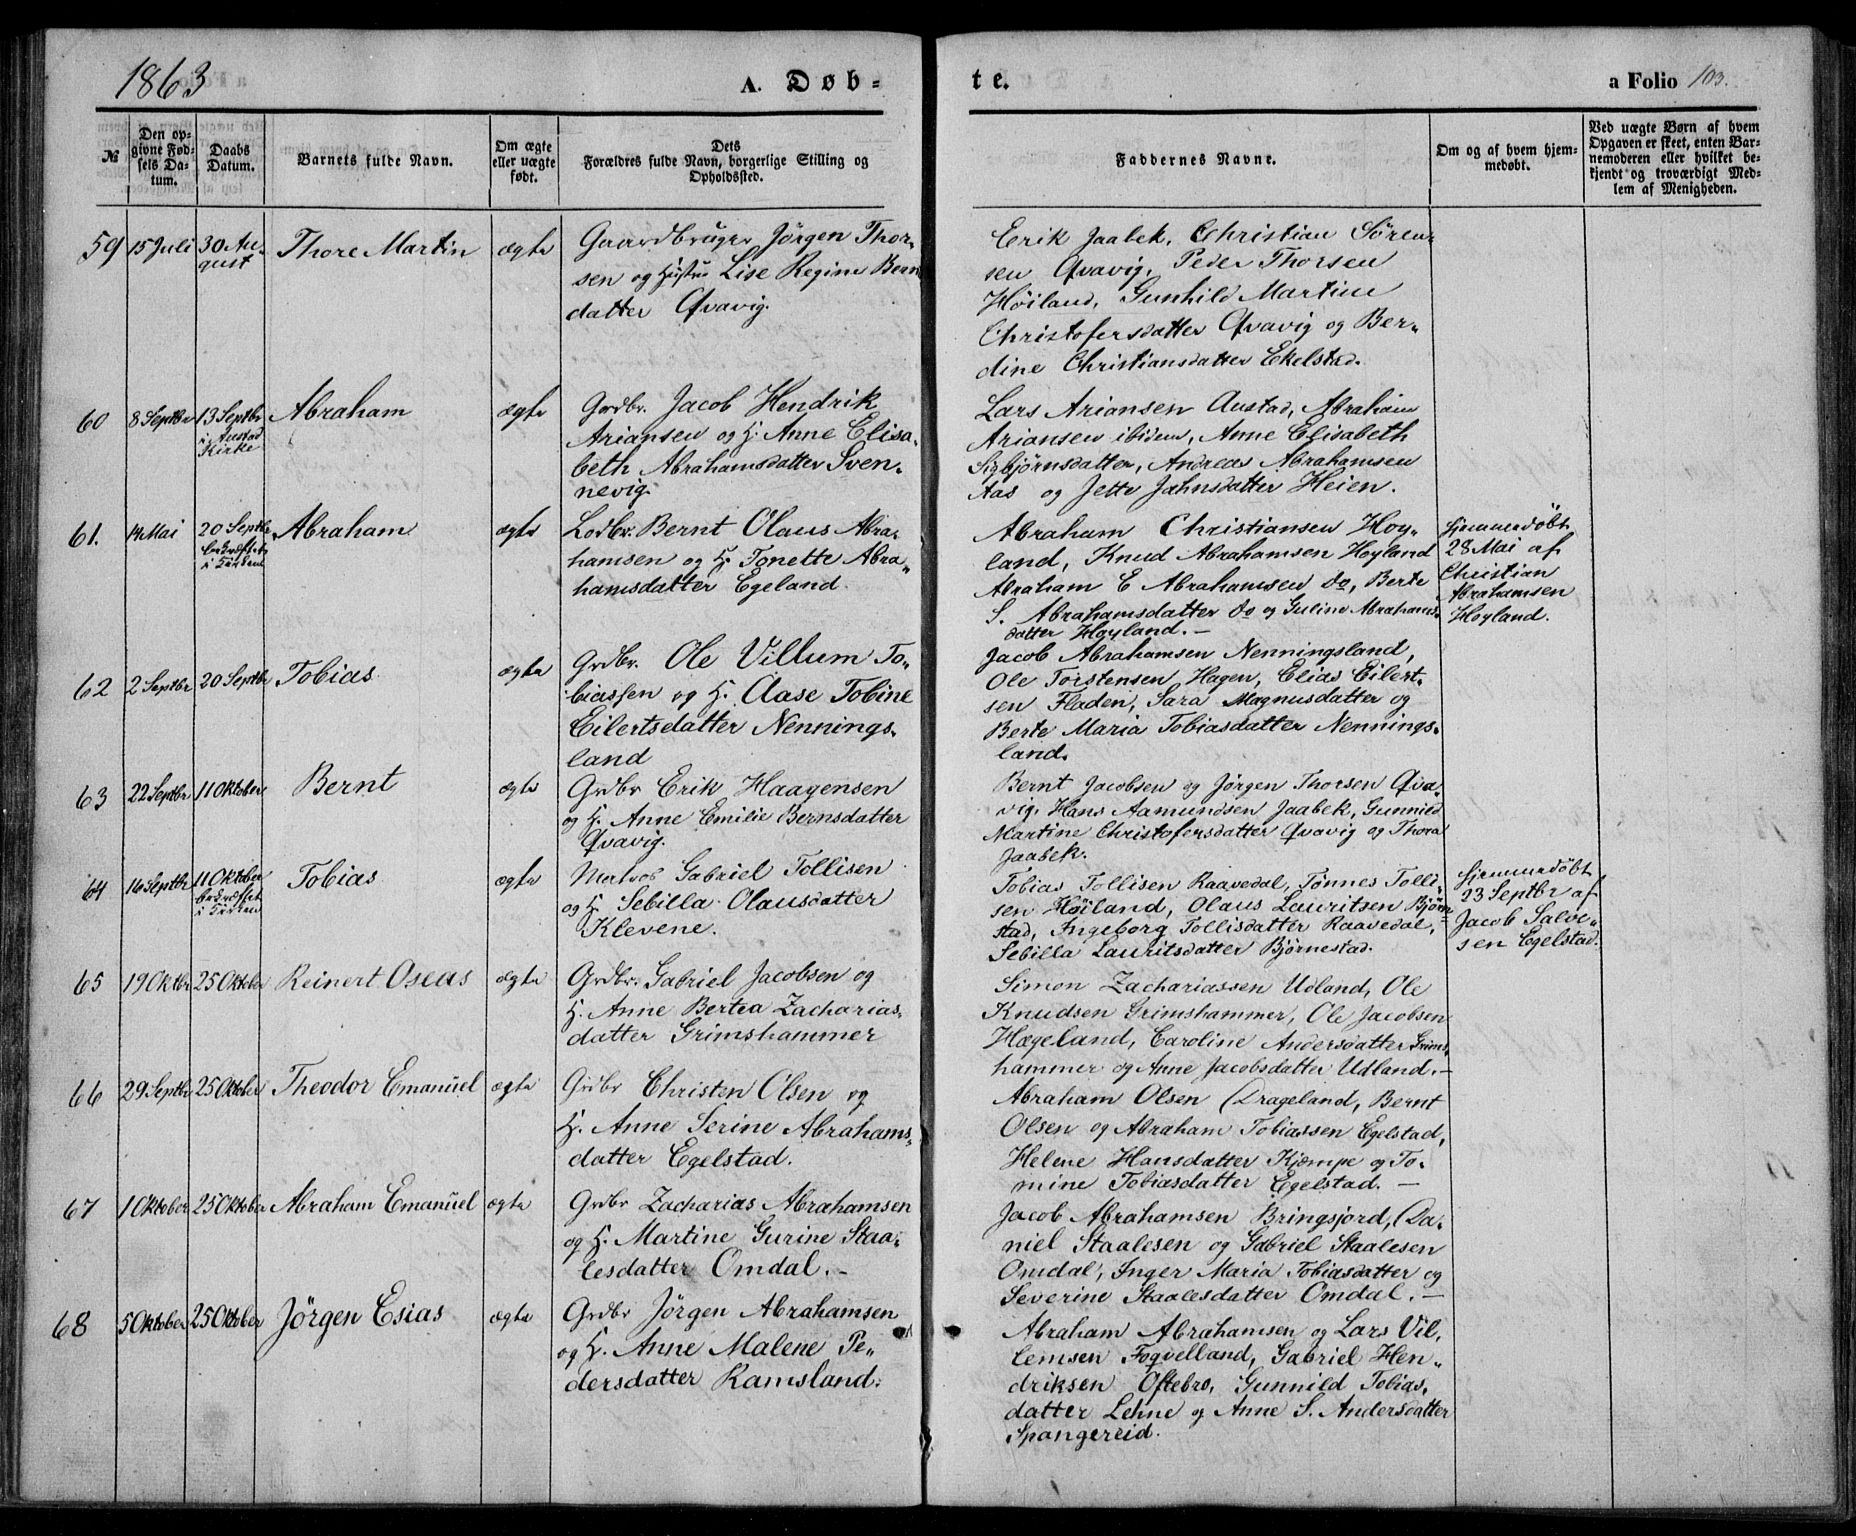 1863
A. Døb-
te.
a Folio 103.
№
Den op-
givne Fød-
sels Da-
tum.
Daabs
Datum.
Barnets fulde Navn.
Om ægte
eller uægte
født.
Dets
Forældres fulde Navn, borgerlige Stilling og
Opholdssted.
Faddernes Navne.
Om og af hvem hjem-
medøbt.
Ved uægte Børn af hvem
Opgaven er skeet, enten Bar-
nemoderen eller hvilket be-
kjendt og troværdigt Med-
lem af Menigheden.
59
15 Juli
30 Au-
gust
Thore Martin
ægte
Gaardbruger Jörgen Thor-
sen og Hustru Lise Regine Bern
datter Qvavig.
Erik Jaabek, Christian Sören-
sen Qvavig, Peder Thorsen
Höiland, Gunhild Martine
Christofersdatter Qvavig og Ber-
dine Christiansdatter Ekelstad.
60
8 Septbr
13 Septbr
i Austad
Kirke
Abraham
ægte
Grdbr. Jacob Hendrik
Ariansen og H. Anne Elisa-
beth Abrahamsdatter Sven-
nevig.
Lars Ariansen Austad, Abraham
Ariansen ibidem, Anne Elisabeth
Sigbjörnsdatter, Andreas Abrahamsen
Aas og Jette Jahnsdatter Heien.
61.
14 Mai
20 Septbr
bekræftet
i Kirken
Abraham
ægte
Lodbr. Bernt Olaus Abra-
hamsen og H. Tonette Abra-
hamsdatter Egeland.
Abraham Christiansen Hoy-
land, Knud Abrahamsen Hoyland
Abraham E Abrahamsen do, Berte
S. Abrahamsdatter do og Guline Abrahams-
datter Hoyland. —
Hjemmedöbt
28 Mai af
Christian
Abrahamsen
Hoyland.
62
2 Septbr
20 Septbr
Tobias
ægte
Grdbr. Ole Villum To-
biassen og H. Aase Tobine
Eilertsdatter Nennings-
land
Jacob Abrahamsen Nenningsland,
Ole Torstensen Hagen, Elias Eilert-
sen Fladen, Sara Magnusdatter og
Berte Maria Tobiasdatter Nennings-
land.
63
22 Septbr
11 Oktober
Bernt
ægte
Grdbr Erik Haagensen
og H. Anne Emilie Bernsdatter
Qvavig.
Bernt Jacobsen og Jörgen Thorsen Qva-
vig, Hans Aamundsen Jaabek, Gunnild
Martine Christofersdatter Qvavig og Thora
Jaabek.
64
16 Septbr
11 Oktober
bekræftet
i Kirken
Tobias
ægte
Gabriel Tollisen
og H. Sebilla Olausdatter
Klevene.
Tobias Tollisen Raavedal, Tönnes Tolli-
sen Höiland, Olaus Lauritsen Bjørn-
stad, Ingeborg Tollisdatter Raavedal,
Sebilla Lauritsdatter Bjørnestad.
Hjemmedöbt
23 Septbr af
Jacob Salve-
sen Egelstad.
65
19 Oktbr
25 Oktober
Reinert Oseas
ægte
Grdbr. Gabriel Jacobsen og
H. Anne Bertea Zacharias-
datter Grimshammer
Simon Zachariassen Udland, Ole
Knudsen Grimshammer, Ole Jacobsen
Hægeland, Caroline Andersdatter Grims-
hammer og Anne Jacobsdatter Udland. —
66
29 Septbr
25 Oktober
Theodor Emanuel
ægte
Grdbr Christen Olsen og
H. Anne Serine Abrahams-
datter Egelstad.
Abraham Olsen Drageland, Bernt
Olsen og Abraham Tobiassen Egelstad,
Helene Hansdatter Kjæmpe og To-
mine Tobiasdatter Egelstad. —
67
1 Oktober
25 Oktober
Abraham Emanuel
ægte
Grdbr Zacharias Abrahamsen
og H. Martine Gurine Staa-
lesdatter Omdal. —
Jacob Abrahamsen Bringsjord, Da-
niel Staalesen og Gabriel Staalesen
Omdal, Inger Maria Tobiasdatter og
Severine Staalesdatter Omdal. —
68
5 Oktober
25 Oktober
Jörgen Esias
ægte
Grdbr Jörgen Abrahamsen
og H. Anne Malene Pe-
dersdatter Ramsland.
Abraham Abrahamsen og Lars Vil-
lemsen Foqvelland, Gabriel Hen-
driksen Oftebro, Gunnild Tobias-
datter Lehne og Anne S. Andersdatter
Spangereid.